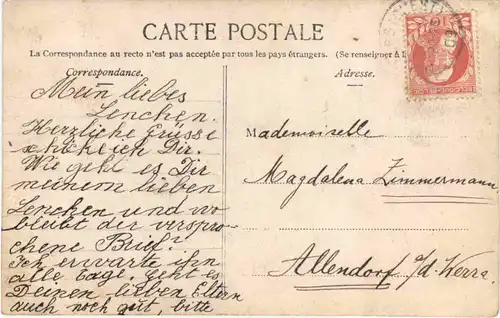 CARTE POSTALE
La Correspondance au recto n'est pas acceptée par tous les pays étrangers. (Se renseigner à
Correspondance.
Adresse.
Mein liebes
Lenchen.
Herzliche Grüsse
schicke ich Dir.
Wie geht es Dir
meinem lieben
Lenchen und wo
bleibt der verspro-
chene Brief?
Ich erwarte ihn
alle Tage. Geht es
Deinen lieben Eltern
auch noch gut, bitte
Mademoiselle
Magdalena Zimmermann
Allendorf a/d. Werra.